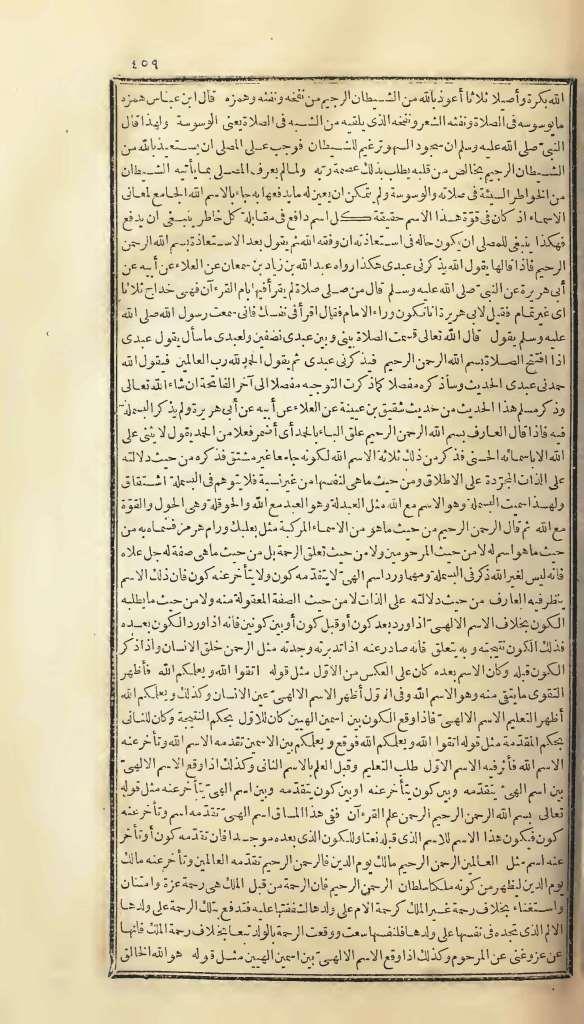 ٤٥٩
الله بكرة وأصيلا ثلاثا أعوذ بالله من الشيطان الرجيم من نفخه ونفثه وهمزه قال ابن عباس همزه
ما يوسوسه فى الصلاة ونفثه الشعر ونفخه الذى يلقيه من الشبه فى الصلاة يعنى الوسوسة ولهذا قال
النبى صلى الله عليه وسلم ان سجود السهو ترغيم للشيطان فوجب على المصلى ان يستعيذ بالله من
الشيطان الرجيم بخالص من قلبه يطلب بذلك عصمة ربه ولما لم يعرف المصلى بما يأتيه الشيطان
من الخواطر السيئة فى صلاته والوسوسة ولم يتمكن ان يعين له ما يدفعها به جاء بالاسم الله الجامع لمعانى
الاسماء اذ كان فى قوّة هذا الاسم حقيقة كل اسم دافع فى مقابلة كل خاطر ينبغى ان يدفع
فهكذا ينبغى للمصلى ان يكون حاله فى استعاذته ان وفقه الله ثم يقول بعد الاستعاذة بسم الله الرحمن
الرحيم فاذا قالها يقول الله يذكرنى عبدى هكذا رواه عبد الله بن زياد بن سمعان عن العلاء عن أبيه عن
أبى هريرة عن النبى صلى الله عليه وسلم قال من صلى صلاة لم يقرأ فيها بام القرءآن فهى خداج ثلاثا
اى غير تمام فقيل لابى هريرة انا نكون وراء الامام فقال اقرأ فى نفسك فانى سمعت رسول الله صلى الله
عليه وسلم يقول قال الله تعالى قسمت الصلاة بينى وبين عبدى نصفين ولعبدى ما سأل يقول عبدى
اذا افتتح الصلاة بسم الله الرحمن الرحيم فيذكرنى عبدى ثم يقول الحمد لله رب العالمين فيقول الله
حمدنى عبدى الحديث وسأذكره مفصلا كما ذكرت التوجيه مفصلا الى آخر الفاتحة ان شاء الله تعالى
وذكر مسلم هذا الحديث من حديث سفيان بن عيينة عن العلاء عن أبيه عن أبى هريرة ولم يذكر البسملة
فيه فاذا قال العارف بسم الله الرحمن الرحيم علق الباء بالحمد أى أضمر فعلا من الحمد يقول لا يثنى على
الله الا باسمائه الحسنى فذكر من ذلك ثلاثة الاسم الله لكونه جامعا غير مشتق فذكره من حيث دلالته
على الذات المجرّدة على الاطلاق ومن حيث ما هى لنفسها من غير نسبة فلا يتوهم فى البسملة اشتقاق
ولهذا سميت البسملة وهو الاسم مع الله مثل العبدلة وهو العبد مع الله والحوقلة وهى الحول والقوّة
مع الله ثم قال الرحمن الرحيم من حيث ما هو من الاسماء المركبة مثل بعلبك ورام هرمز فسماه به من
حيث ما هو اسم له لا من حيث المرحومين ولا من حيث تعلق الرحمة بل من حيث ما هى صفة له جل علاه
فانه ليس لغير الله ذكر فى البسملة ومهما ورد اسم الهىّ لا يتقدّمه كون ولا يتأخر عنه كون فان ذلك الاسم
ينظر فيه العارف من حيث دلالته على الذات لا من حيث الصفة المعقولة منه ولا من حيث ما يطلبه
الكون بخلاف الاسم الالهىّ اذا ورد بعد كون أو قبل كون أو بين كونين فانه اذا ورد الكون بعده
فذلك الكون نتيجته وبه يتعلق فانه صادر عنه اذا تدبرته وجدته مثل الرحمن خلق الانسان واذا ذكر
الكون قبله وكان الاسم بعده كان على العكس من الاوّل مثل قوله اتقوا الله ويعلمكم الله فأظهر
التقوى ما يتقى منه وهو الاسم الله وفى الاوّل أظهر الاسم الالهىّ عين الانسان وكذلك ويعلمكم الله
أظهر التعليم الاسم الالهىّ فاذا وقع الكون بين اسمين الهيين كان للاوّل بحكم النتيجة وكان للثانى
بحكم المقدّمة مثل قوله اتقوا الله ويعلمكم الله فوقع ويعلمكم بين الاسمين تقدّمه الاسم الله وتأخر عنه
الاسم الله فأثر فيه الاسم الاوّل طلب التعليم وقبل العلم بالاسم الثانى وكذلك اذا وقع الاسم الالهىّ
بين اسم الهىّ يتقدّمه وبين كون يتأخر عنه او بين كون يتقدّمه وبين اسم الهىّ يتأخر عنه مثل قوله
تعالى بسم الله الرحمن الرحيم الرحمن علم القرءآن ففى هذا المساق اسم الهىّ تقدّمه اسم وتأخر عنه
كون فيكون هذا الاسم للاسم الذى قبله نعتا وللكون الذى بعده موجدا فان تقدّمه كون أو تأخر
عنه اسم مثل العالمين الرحمن الرحيم مالك يوم الدين فالرحمن الرحيم تقدّمه العالمين وتأخر عنه مالك
يوم الدين ليظهر من كونه ملكا سلطان الرحمن الرحيم فان الرحمة من قبل الملك هى رحمة عزة وامتنان
واستغناء بخلاف رحمة غير الملك كرحمة الام على ولدها لشفقتها عليه فتدفع بتلك الرحمة على ولدها
الالم الذى تجده فى نفسها على ولدها فلنفسها سعت ووقعت الرحمة بالولد تبعا بخلاف رحمة الملك فانها
عن عز وغنى عن المرحوم وكذلك اذا وقع الاسم الالهىّ بين اسمين الهيين مثل قوله هو الله الخالق